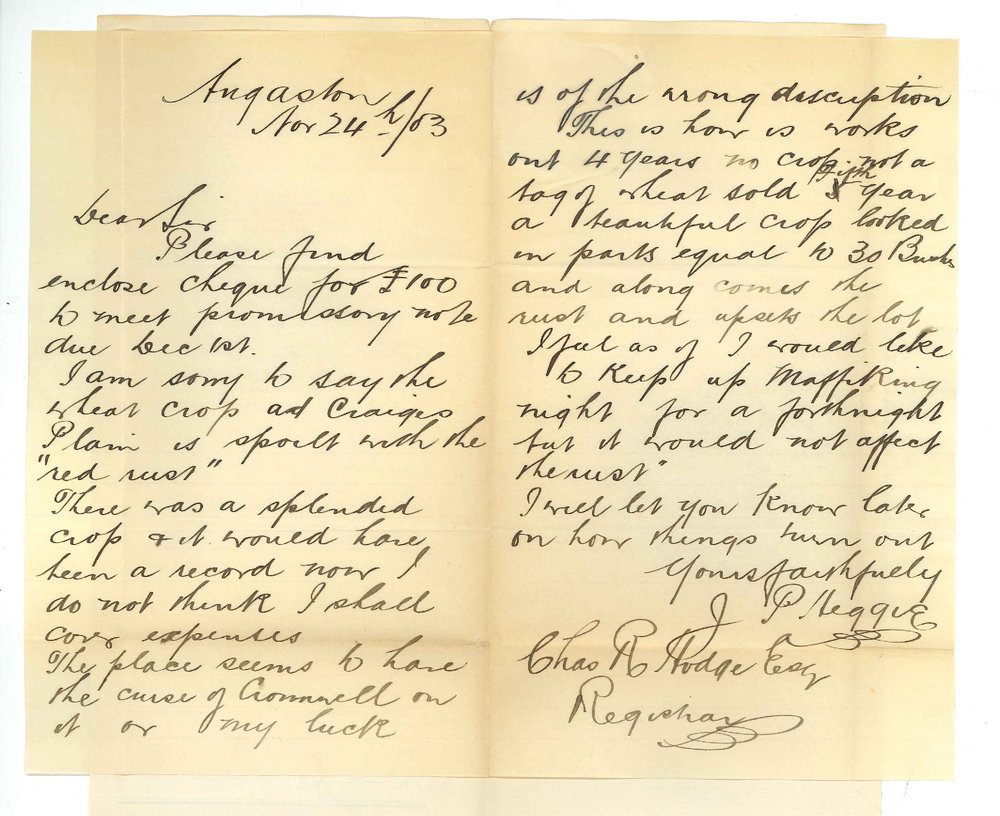 Angaston
Nov 24th/03
Dear Sir
Please find
enclose cheque for £100
to meet promissory note
due Dec 1st.
I am sorry to say the
wheat crop ad Craigs
Plain is spoilt with the
"red rust"
There was a splendid
crop & it would have
been a record now I
do not think I shall
cover expenses
The place seems to have
the curse of Cromwell on
it or my luck
is of the wrong description
This is how is works
out 4 years no crop not a
bag of wheat sold Fifth year
a beautiful crop looked
in parts equal to 30 Bushs
and along comes the
rust and upsets the lot
I feel as if I would like
to keep up Maffiking
night for a forthnight
but it would not affect
the rust"
I will let you know later
on how things turn out
Yours faithfully
J P Heggie
Chas R Hodge Esq
Registrar